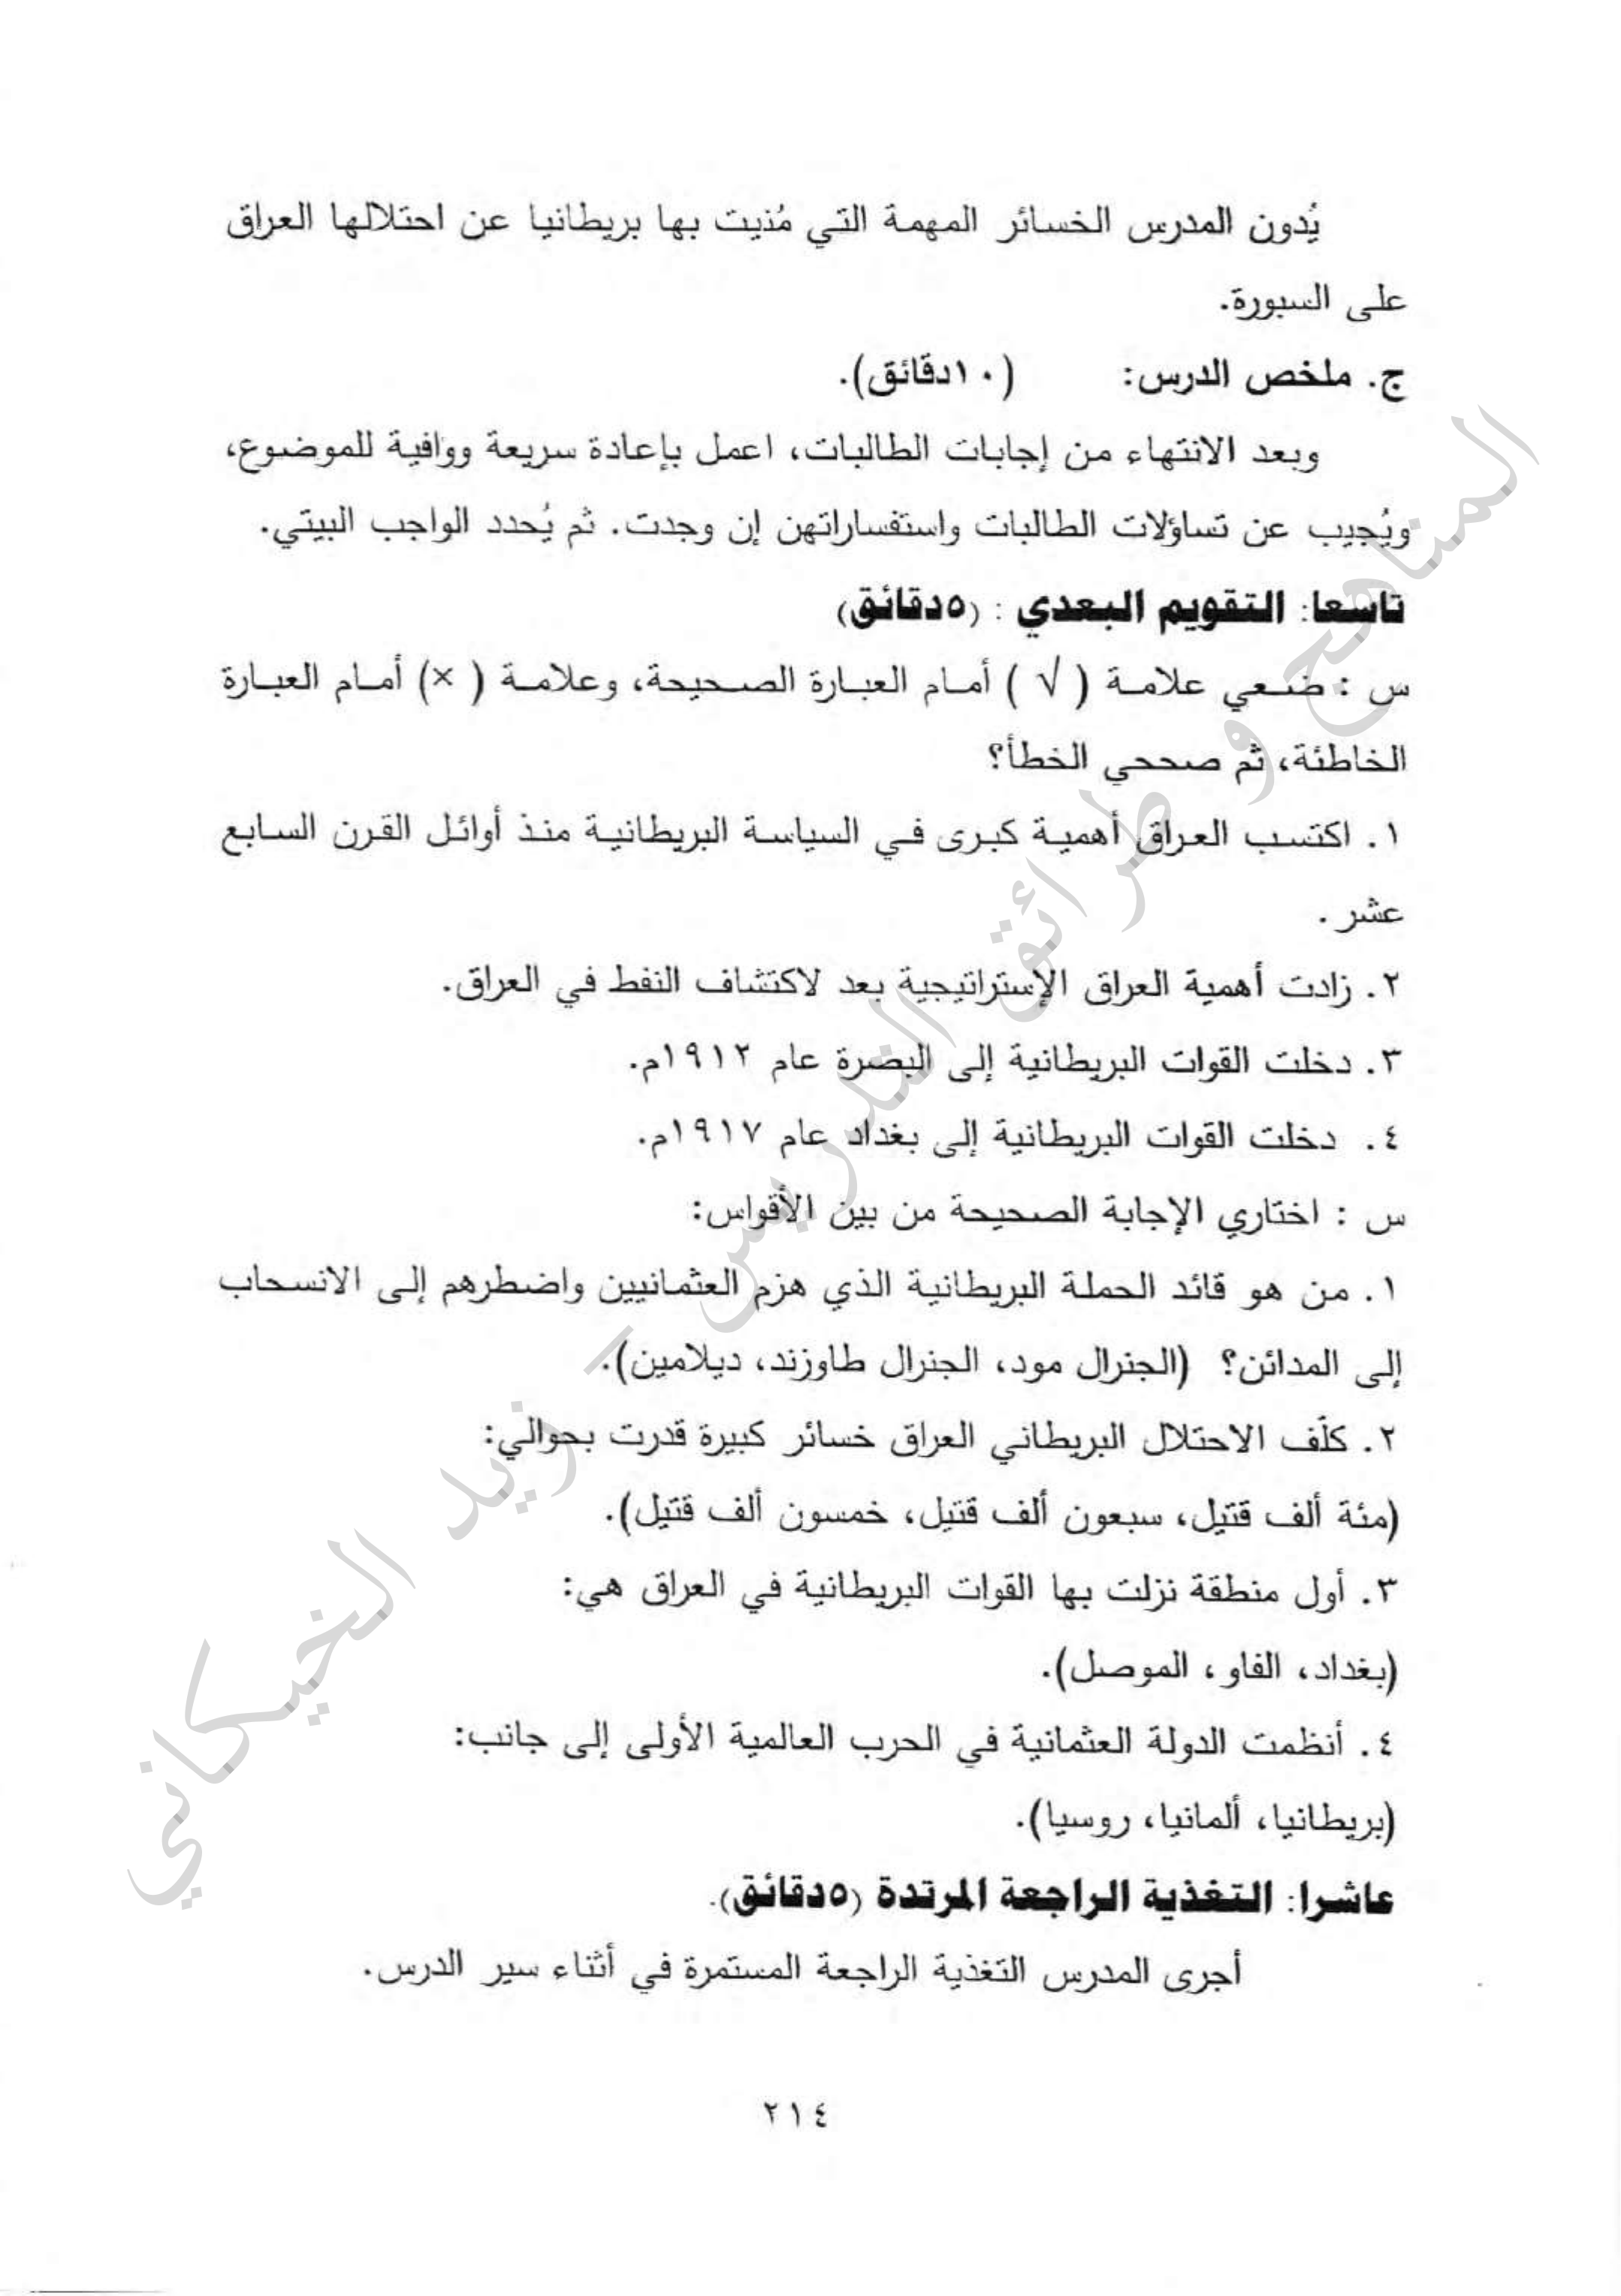 يُدون المدرس الخسائر المهمة التي مُنيت بها بريطانيا عن احتلالها العراق
على السبورة.
ج. ملخص الدرس: (١٠دقائق).
وبعد الانتهاء من إجابات الطالبات، اعمل بإعادة سريعة ووافية للموضوع،
ويُجيب عن تساؤلات الطالبات واستفساراتهن إن وجدت. ثم يُحدد الواجب البيتي.
تاسعا: التقويم البعدي : (٥دقائق)
س : ضعي علامة ( √ ) أمام العبارة الصحيحة، وعلامة ( × ) أمام العبارة
الخاطئة، ثم صححي الخطأ؟
١. اكتسب العراق أهمية كبرى في السياسة البريطانية منذ أوائل القرن السابع
عشر.
٢. زادت أهمية العراق الإستراتيجية بعد لاكتشاف النفط في العراق.
٣. دخلت القوات البريطانية إلى البصرة عام ١٩١٢م.
٤. دخلت القوات البريطانية إلى بغداد عام ١٩١٧م.
س : اختاري الإجابة الصحيحة من بين الأقواس:
١. من هو قائد الحملة البريطانية الذي هزم العثمانيين واضطرهم إلى الانسحاب
إلى المدائن؟ (الجنرال مود، الجنرال طاوزند، ديلامين).
٢. كلّف الاحتلال البريطاني العراق خسائر كبيرة قدرت بحوالي:
(مئة ألف قتيل، سبعون ألف قتيل، خمسون ألف قتيل).
٣. أول منطقة نزلت بها القوات البريطانية في العراق هي:
(بغداد، الفاو، الموصل).
٤. أنظمت الدولة العثمانية في الحرب العالمية الأولى إلى جانب:
(بريطانيا، ألمانيا، روسيا).
عاشرا: التغذية الراجعة المرتدة (٥دقائق).
أجرى المدرس التغذية الراجعة المستمرة في أثناء سير الدرس.
٢١٤
المناهج و طرائق التدريس - زيد الخيكاني